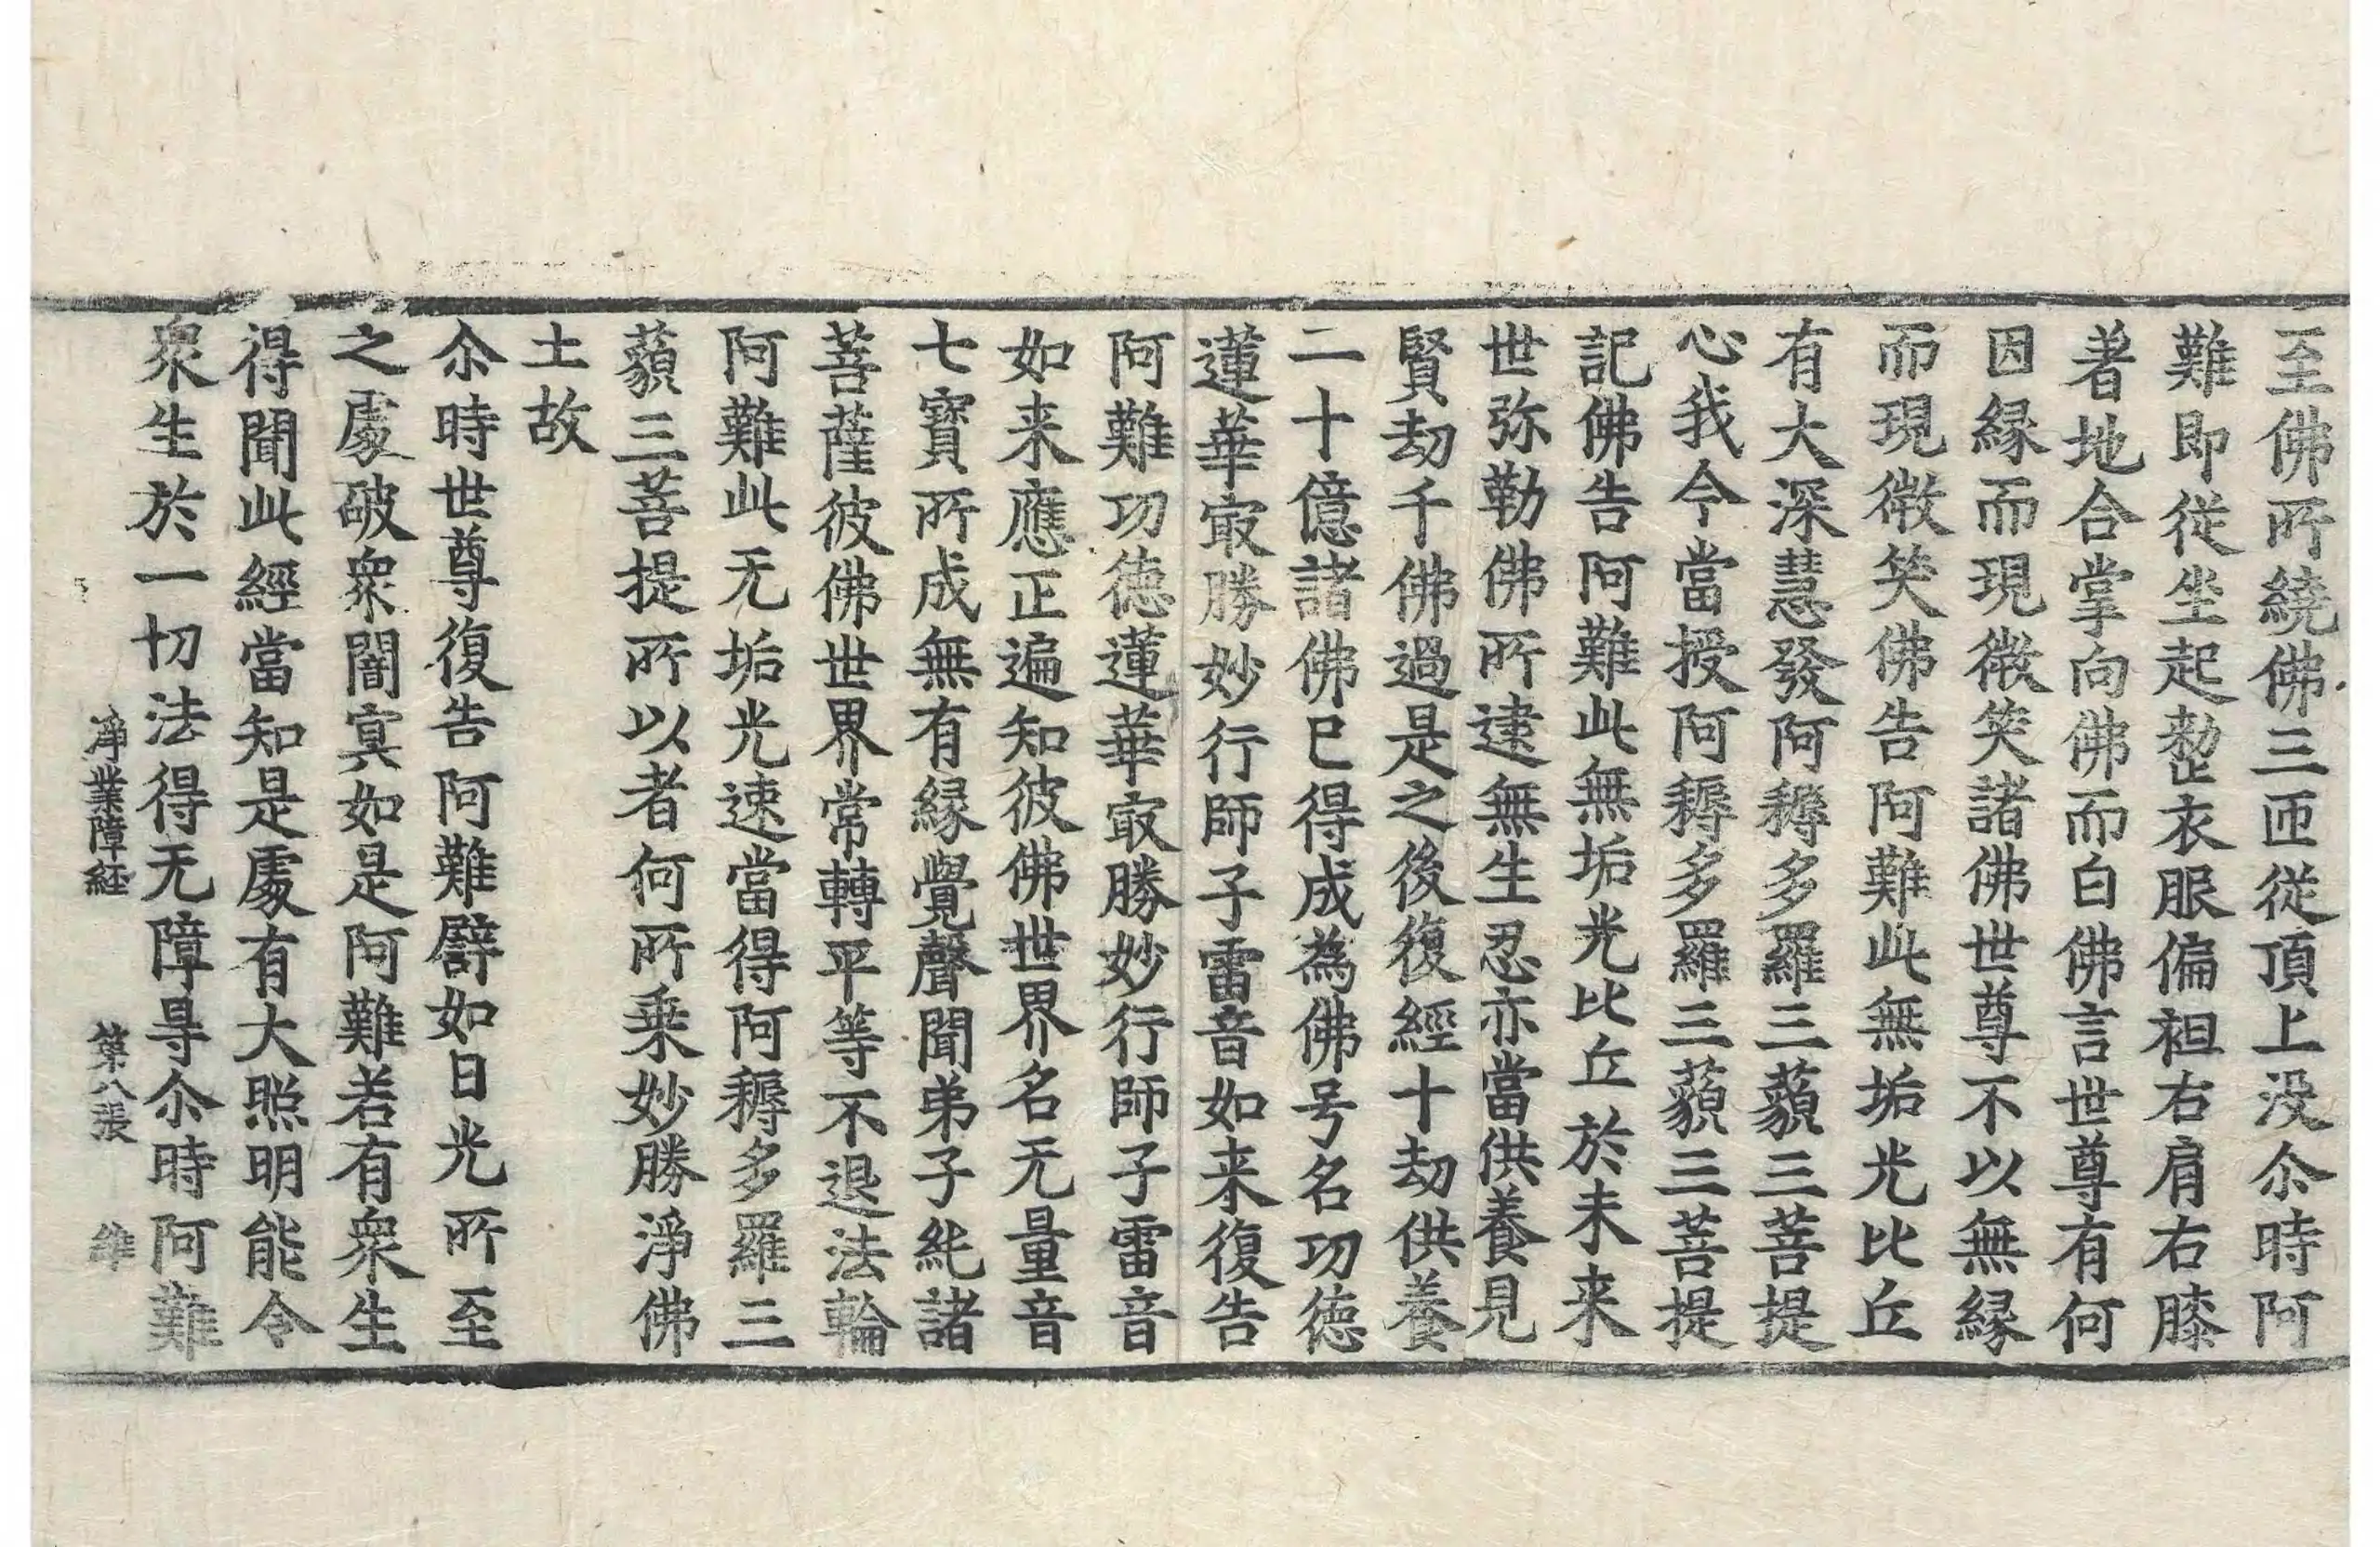 至佛所繞佛三匝從頂上没尒時阿
難即從坐起整衣服偏袒右肩右膝
著地合掌向佛而白佛言世尊有何
因緣而現微笑諸佛世尊不以無緣
而現微笑佛告阿難此無垢光比丘
有大深慧發阿耨多羅三藐三菩提
心我今當授阿耨多羅三藐三菩提
記佛告阿難此無垢光比丘於未来
世弥勒佛所逮無生忍亦當供養見
賢劫千佛過是之後復經十劫供養
二十億諸佛已得成為佛号名功徳
蓮華㝡勝妙行師子雷音如来復告
阿難功徳蓮華㝡勝妙行師子雷音
如来應正遍知彼佛世界名无量音
七寶所成無有緣覺聲聞弟子純諸
菩薩彼佛世界常轉平等不退法輪
阿難此无垢光速當得阿耨多羅三
藐三菩提所以者何所乗妙勝淨佛
土故
尒時世尊復告阿難譬如日光所至
之處破衆闇冥如是阿難若有衆生
得聞此經當知是處有大照明能令
衆生於一切法得无障㝵尒時阿難
淨業障経　第八張　維